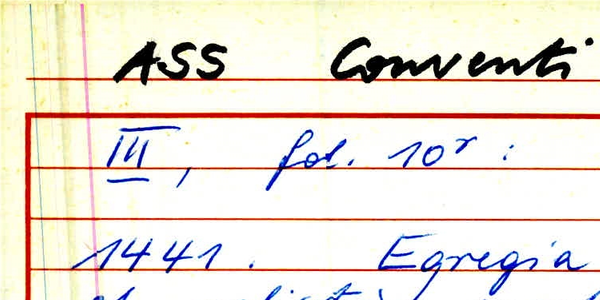 ASS Conventi
III, fol. 10r :
1441. Egregia